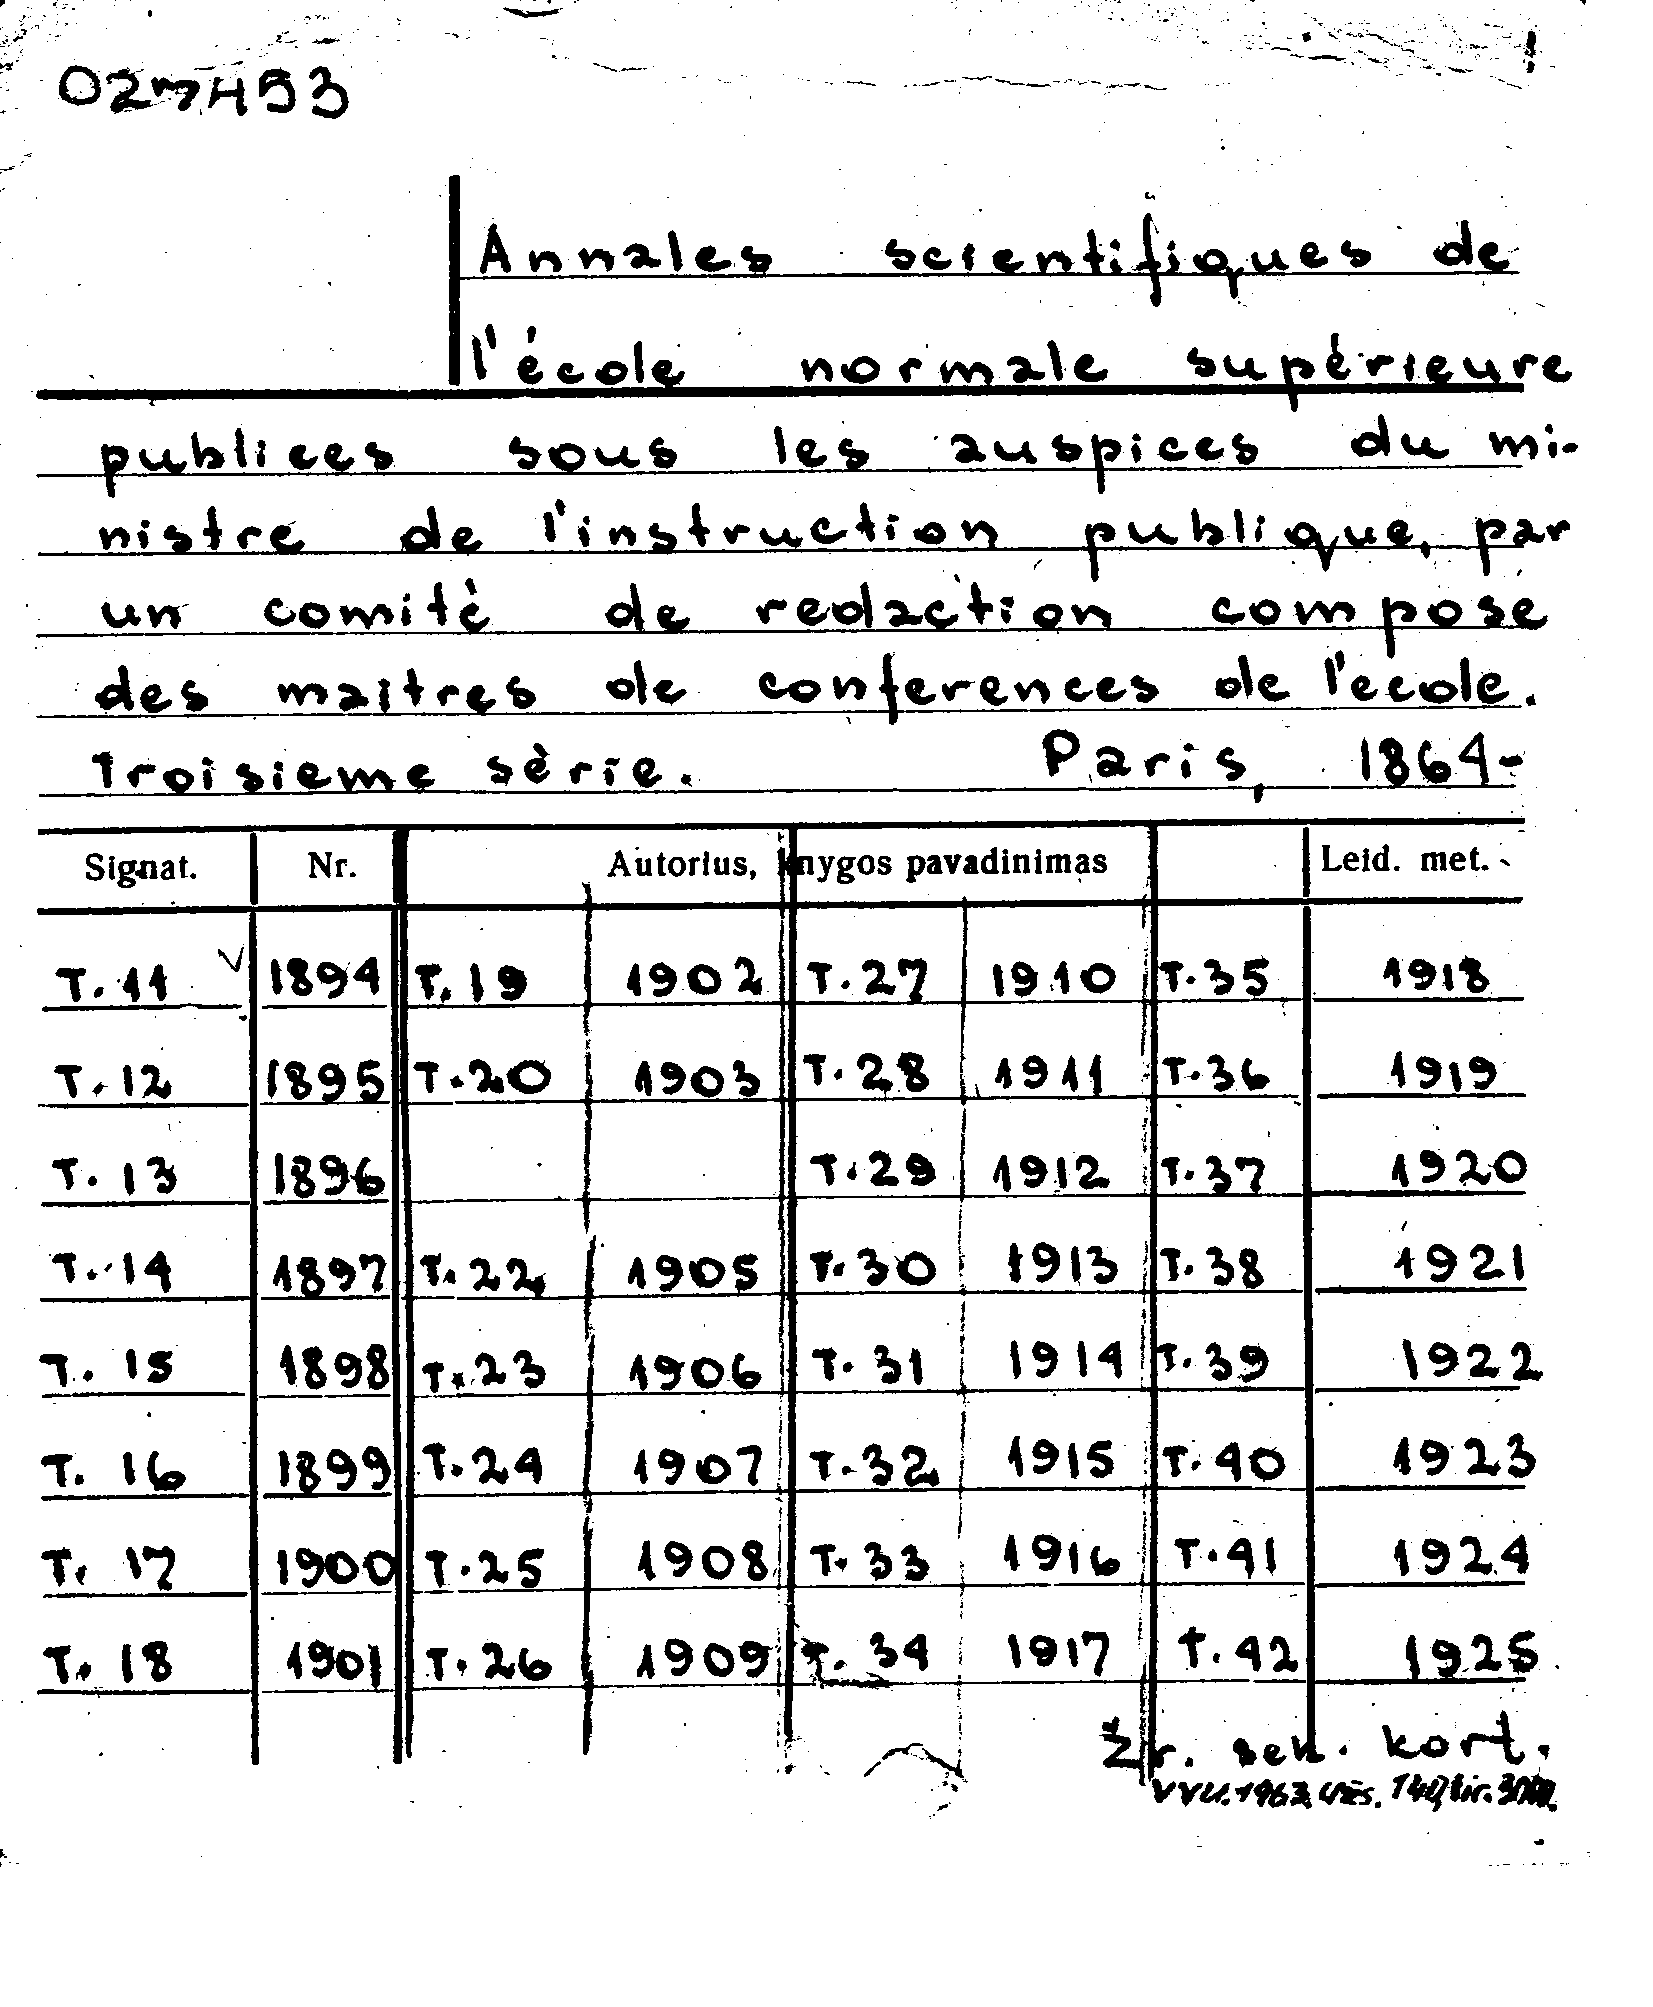 Annales scientifiques de
l'école normale supérieure
publiees sous les auspices du mi-
nistre de l'instruction publique, par
un comité de redaction compose
des maitres de conferences de l'ecole.
Troisieme série. Paris, 1864-
Signat. Nr. Autorius, knygos pavadinimas Leid. met.
T. 11 1894 T. 19 1902 T. 27 1910 T. 35 1918
T. 12 1895 T. 20 1903 T. 28 1911 T. 36 1919
T. 13 1896 T. 29 1912 T. 37 1920
T. 14 1897 T. 22 1905 T. 30 1913 T. 38 1921
T. 15 1898 T. 23 1906 T. 31 1914 T. 39 1922
T. 16 1899 T. 24 1907 T. 32 1915 T. 40 1923
T. 17 1900 T. 25 1908 T. 33 1916 T. 41 1924
T. 18 1901 T. 26 1909 T. 34 1917 T. 42 1925
Žr. sek. kort.